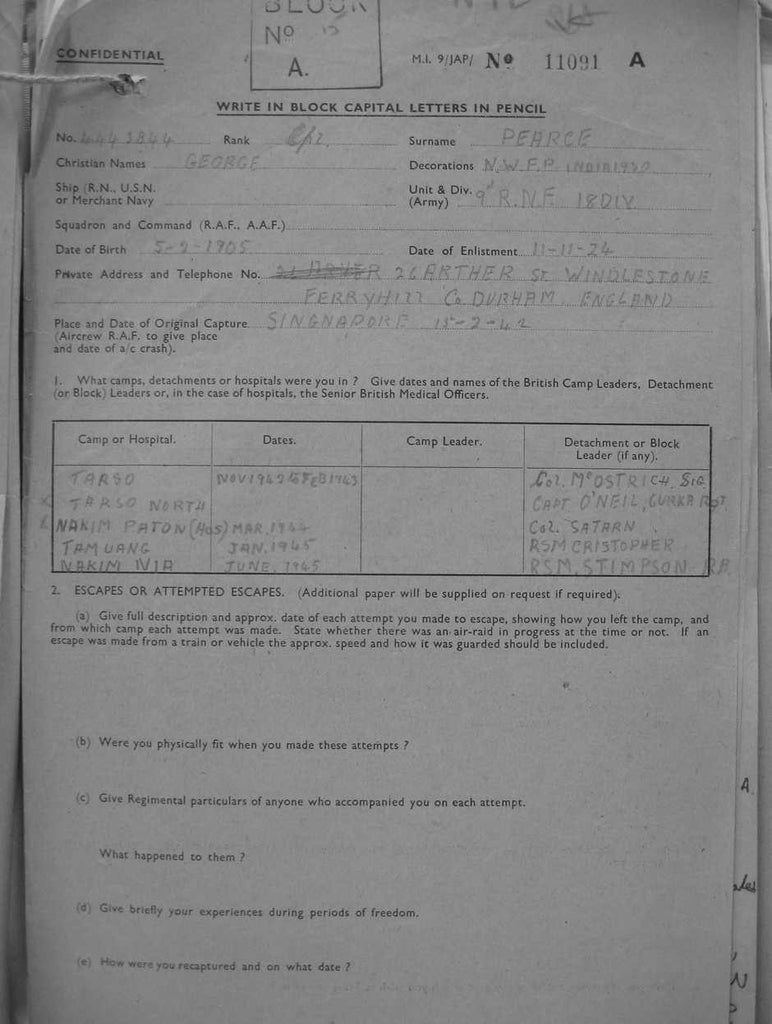 BLOCK
Nº
A.
CONFIDENTIAL
M.I. 9/JAP/ Nº 11091 A
WRITE IN BLOCK CAPITAL LETTERS IN PENCIL
No. 4443844 Rank Cpl Surname PEARCE
Christian Names GEORGE Decorations N.W.F.P. INDIA 1930
Ship (R.N., U.S.N. or Merchant Navy
Unit & Div. (Army) 9th R.N.F. 18 DIV
Squadron and Command (R.A.F., A.A.F.)
Date of Birth 5-2-1905 Date of Enlistment 11-11-24
Private Address and Telephone No. 26 ARTHER St. WINDLESTONE
FERRYHILL Co DURHAM. ENGLAND
Place and Date of Original Capture SINGNAPORE 15-2-42
(Aircrew R.A.F. to give place
and date of a/c crash).
1. What camps, detachments or hospitals were you in ? Give dates and names of the British Camp Leaders, Detachment
(or Block) Leaders or, in the case of hospitals, the Senior British Medical Officers.
Camp or Hospital. Dates. Camp Leader. Detachment or Block Leader (if any).
TARSO NOV 1942 FEB 1943 Col. McOSTRICH. SIG
TARSO NORTH CAPT O'NEIL, GURKA
NAKIM PATON (Hos) MAR. 1944 Col. SATARN
TAMUANG JAN. 1945 RSM CRISTOPHER
NAKIM JUNE. 1945 RSM. STIMPSON
2. ESCAPES OR ATTEMPTED ESCAPES. (Additional paper will be supplied on request if required).
(a) Give full description and approx. date of each attempt you made to escape, showing how you left the camp, and
from which camp each attempt was made. State whether there was an air-raid in progress at the time or not. If an
escape was made from a train or vehicle the approx. speed and how it was guarded should be included.
(b) Were you physically fit when you made these attempts ?
(c) Give Regimental particulars of anyone who accompanied you on each attempt.
What happened to them ?
(d) Give briefly your experiences during periods of freedom.
(e) How were you recaptured and on what date ?
A